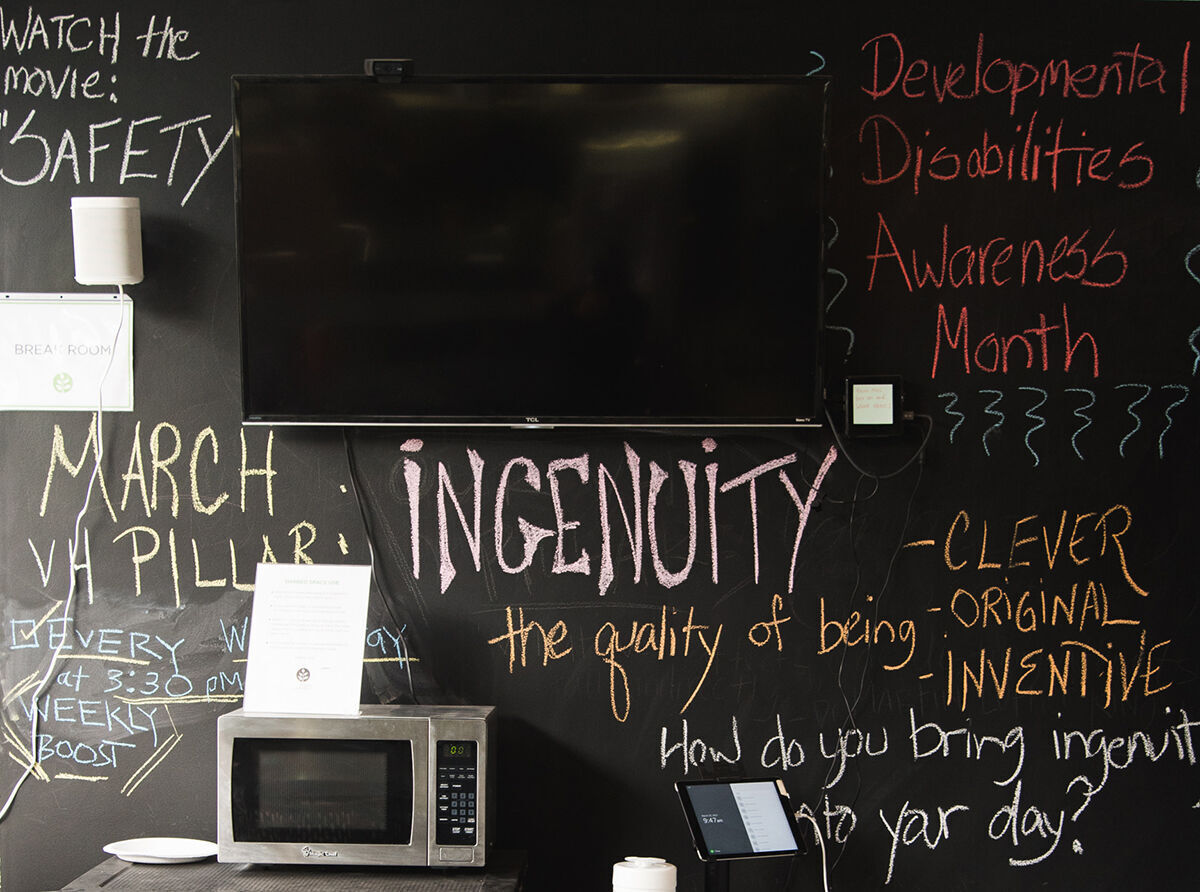 WATCH the
movie:
"SAFETY
Developmental
Disabilities
Awareness
Month
BREAKROOM
TCL
Roku TV
MARCH
VH PILLAR:
INGENUITY
the quality of being
- CLEVER
- ORIGINAL
- INVENTIVE
EVERY
at 3:30 PM
WEEKLY
BOOST
SHARED SPACE USE
How do you bring ingenuit
into your day?
00
Magic Chef
9:47